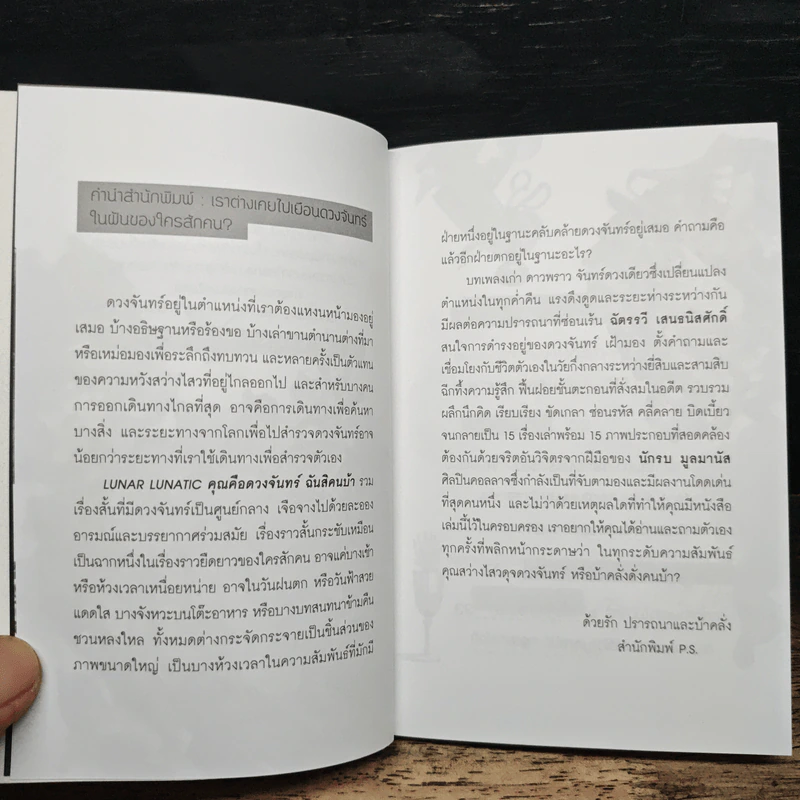 คำนำสำนักพิมพ์ : เราต่างเคยไปเยือนดวงจันทร์
ในฝันของใครสักคน?
ดวงจันทร์อยู่ในตำแหน่งที่เราต้องแหงนหน้ามองอยู่
เสมอ บ้างอธิษฐานหรือร้องขอ บ้างเล่าขานตำนานต่างที่มา
หรือเหม่อมองเพื่อระลึกถึงทบทวน และหลายครั้งเป็นตัวแทน
ของความหวังสว่างไสวที่อยู่ไกลออกไป และสำหรับบางคน
การออกเดินทางไกลที่สุด อาจคือการเดินทางเพื่อค้นหา
บางสิ่ง และระยะทางจากโลกเพื่อไปสำรวจดวงจันทร์อาจ
น้อยกว่าระยะทางที่เราใช้เดินทางเพื่อสำรวจตัวเอง
LUNAR LUNATIC คุณคือดวงจันทร์ ฉันสิคนบ้า รวม
เรื่องสั้นที่มีดวงจันทร์เป็นศูนย์กลาง เจือจางไปด้วยละออง
อารมณ์และบรรยากาศร่วมสมัย เรื่องราวสั้นกระชับเหมือน
เป็นฉากหนึ่งในเรื่องราวยืดยาวของใครสักคน อาจแค่บางเช้า
หรือห้วงเวลาเหนื่อยหน่าย อาจในวันฝนตก หรือวันฟ้าสวย
แดดใส บางจังหวะบนโต๊ะอาหาร หรือบางบทสนทนาข้ามคืน
ชวนหลงใหล ทั้งหมดต่างกระจัดกระจายเป็นชิ้นส่วนของ
ภาพขนาดใหญ่ เป็นบางห้วงเวลาในความสัมพันธ์ที่มักมี
ฝ่ายหนึ่งอยู่ในฐานะคลับคล้ายดวงจันทร์อยู่เสมอ คำถามคือ
แล้วอีกฝ่ายตกอยู่ในฐานะอะไร?
บทเพลงเก่า ดาวพราว จันทร์ดวงเดียวซึ่งเปลี่ยนแปลง
ตำแหน่งในทุกค่ำคืน แรงดึงดูดและระยะห่างระหว่างกัน
มีผลต่อความปรารถนาที่ซ่อนเร้น ฉัตรรวี เสนธนิสศักดิ์
สนใจการดำรงอยู่ของดวงจันทร์ เฝ้ามอง ตั้งคำถามและ
เชื่อมโยงกับชีวิตตัวเองในวัยกึ่งกลางระหว่างยี่สิบและสามสิบ
ฉีกทึ้งความรู้สึก ฟื้นฝอยชั้นตะกอนที่สั่งสมในอดีต รวบรวม
ผลึกนึกคิด เรียบเรียง ขัดเกลา ซ่อนรหัส คลี่คลาย บิดเบี้ยว
จนกลายเป็น 15 เรื่องเล่าพร้อม 15 ภาพประกอบที่สอดคล้อง
ต้องกันด้วยจริตอันวิจิตรจากฝีมือของ นักรบ มูลมานัส
ศิลปินคอลลาจซึ่งกำลังเป็นที่จับตามองและมีผลงานโดดเด่น
ที่สุดคนหนึ่ง และไม่ว่าด้วยเหตุผลใดที่ทำให้คุณมีหนังสือ
เล่มนี้ไว้ในครอบครอง เราอยากให้คุณได้อ่านและถามตัวเอง
ทุกครั้งที่พลิกหน้ากระดาษว่า ในทุกระดับความสัมพันธ์
คุณสว่างไสวดุจดวงจันทร์ หรือบ้าคลั่งดั่งคนบ้า?
ด้วยรัก ปรารถนาและบ้าคลั่ง
สำนักพิมพ์ P.S.